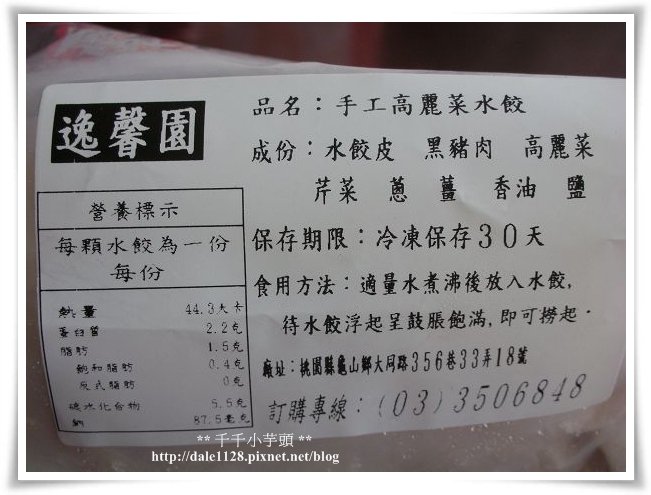 逸馨園
品名：手工高麗菜水餃
成份：水餃皮 黑豬肉 高麗菜
芹菜 蔥 薑 香油 鹽
保存期限：冷凍保存30天
食用方法：適量水煮沸後放入水餃，
待水餃浮起呈鼓脹飽滿，即可撈起．
廠址：桃園縣龜山鄉大同路356巷33弄18號
訂購專線：(03)3506848
營養標示
每顆水餃為一份
每份
熱量 44.3大卡
蛋白質 2.2克
脂肪 1.5克
飽和脂肪 0.4克
反式脂肪 0克
碳水化合物 5.5克
鈉 87.5毫克
** 千千小芋頭 **
http://dale1128.pixnet.net/blog